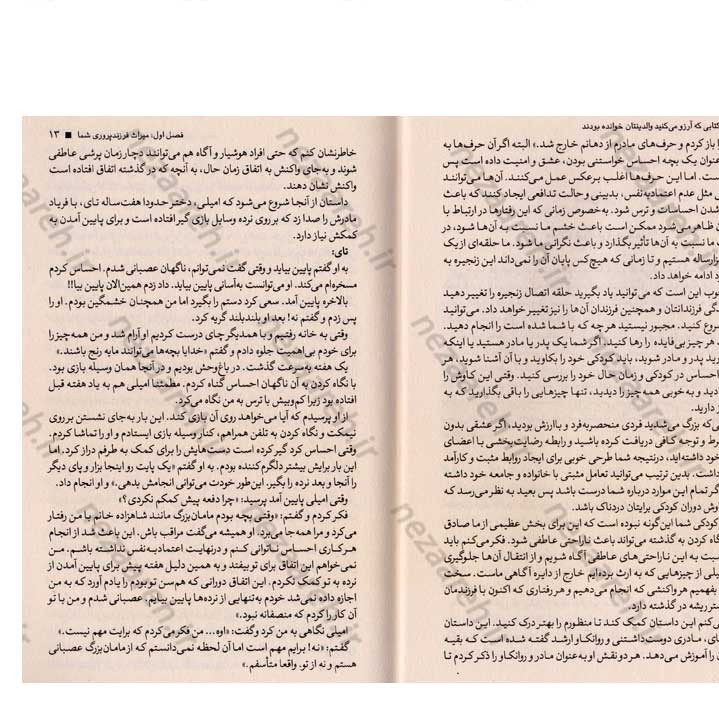 کتابی که آرزو می‌کنید والدینتان خوانده بودند
را باز کردم و حرف‌های مادرم از دهانم خارج شد.» البته اگر آن حرف‌ها به
عنوان یک بچه احساس خواستنی بودن، عشق و امنیت داده است پس
است. اما این حرف‌ها اغلب برعکس عمل می‌کنند. آن‌ها می‌توانند
مثل عدم اعتمادبه‌نفس، بدبینی و حالت تدافعی ایجاد کنند که باعث
شدن احساسات و ترس شود. به‌خصوص زمانی که این رفتارها در ارتباط با
ظاهر می‌شود ممکن است باعث خشم ما نسبت به آن‌ها شود، در
ما نسبت به آن‌ها تأثیر بگذارد و باعث نگرانی ما شود. ما حلقه‌ای از یک
هزارساله هستیم و تا زمانی که هیچ‌کس پایان آن را نمی‌داند این زنجیره به
ادامه خواهد داد.
خوب این است که می‌توانید یاد بگیرید حلقه اتصال زنجیره را تغییر دهید
فرزندانتان و همچنین فرزندان آن‌ها را نیز تغییر خواهد داد. می‌توانید
شروع کنید. مجبور نیستید هر چه که با شما شده است را انجام دهید.
هر چیز بی‌فایده را رها کنید. اگر شما یک پدر یا مادر هستید یا اینکه
پدر و مادر شوید، باید کودکی خود را بکاوید و با آن آشنا شوید، هر
احساس در کودکی و زمان حال خود را بررسی کنید. وقتی این کاوش را
دید و به خوبی همه چیز را دیدید، تنها چیزهایی را باقی بگذارید که به
دارید.
که بزرگ می‌شدید فردی منحصربه‌فرد و باارزش بودید، اگر عشقی بدون
شرط و توجه کافی دریافت کرده باشید و رابطه رضایت‌بخشی با اعضای
خود داشته‌اید، درنتیجه شما طرحی خوبی برای ایجاد روابط مثبت و کارآمد
داشت. بدین ترتیب می‌توانید تعامل مثبتی با خانواده و جامعه خود داشته
اگر تمام این موارد درباره شما درست باشد پس بعید به نظر می‌رسد که
کاوش دوران کودکی برایتان دردناک باشد.
کودکی شما این‌گونه نبوده است که این برای بخش عظیمی از ما صادق
نگاه کردن به گذشته می‌تواند باعث ناراحتی عاطفی شود. فکر می‌کنم باید
نسبت به این ناراحتی‌های عاطفی آگاه شویم و از انتقال آن‌ها جلوگیری
خیلی از چیزهایی که به ارث برده‌ایم خارج از دایره آگاهی ماست. سخت
بفهمیم هر واکنشی که انجام می‌دهیم و هر رفتاری که اکنون با فرزندمان
ریشه در گذشته دارد.
کنم این داستان کمک کند تا منظورم را بهتر درک کنید. این داستان
تای، مادری دوست‌داشتنی و روانکاو ارشد گفته شده است که بقیه
را آموزش می‌دهد. هر دو نقش او به‌عنوان مادر و روانکاو را ذکر کردم تا
فصل اول: میراث فرزندپروری شما ■ ۱۳
خاطرنشان کنم که حتی افراد هوشیار و آگاه هم می‌توانند دچار زمان پرشی عاطفی
شوند و به‌جای واکنش به اتفاق زمان حال، به آنچه که در گذشته اتفاق افتاده است
واکنش نشان دهند.
داستان از آنجا شروع می‌شود که امیلی، دختر حدودا هفت‌ساله تای، با فریاد
مادرش را صدا زد که بر روی نرده وسایل بازی گیر افتاده است و برای پایین آمدن به
کمکش نیاز دارد.
تای:
به او گفتم پایین بیاید و وقتی گفت نمی‌توانم، ناگهان عصبانی شدم. احساس کردم
مسخره‌ام می‌کند. او می‌توانست به‌آسانی پایین بیاید. داد زدم همین‌الان پایین بیا!!
بالاخره پایین آمد. سعی کرد دستم را بگیرد اما من همچنان خشمگین بودم. او را
پس زدم و گفتم نه! بعد او بلندبلند گریه کرد.
وقتی به خانه رفتیم و با همدیگر چای درست کردیم او آرام شد و من همه چیز را
برای خودم بی‌اهمیت جلوه دادم و گفتم «خدایا بچه‌ها می‌توانند مایه رنج باشند.»
یک هفته به‌سرعت گذشت. در باغ‌وحش بودیم و در آنجا همان وسیله بازی بود.
با نگاه کردن به آن ناگهان احساس گناه کردم. مطمئنا امیلی هم به یاد هفته قبل
افتاده بود زیرا کم‌وبیش با ترس به من نگاه می‌کرد.
از او پرسیدم که آیا می‌خواهد روی آن بازی کند. این بار به‌جای نشستن بر روی
نیمکت و نگاه کردن به تلفن همراهم، کنار وسیله بازی ایستادم و او را تماشا کردم.
وقتی احساس کرد گیر کرده است دست‌هایش را برای کمک به طرفم دراز کرد. اما
این بار برایش بیشتر دلگرم‌کننده بودم. به او گفتم «یک پایت رو اینجا بزار و پای دیگر
را آنجا و بعد نرده را بگیر. این‌طور خودت می‌توانی انجامش بدهی.» و او انجام داد.
وقتی امیلی پایین آمد پرسید: «چرا دفعه پیش کمکم نکردی؟»
فکر کردم و گفتم: «وقتی بچه بودم مامان‌بزرگ مانند شاهزاده خانم با من رفتار
می‌کرد و مرا همه‌جا می‌برد. او همیشه می‌گفت مراقب باش. این باعث شد از انجام
هر کاری احساس ناتوانی کنم و درنهایت اعتمادبه‌نفس نداشته باشم. من
نمی‌خواهم این اتفاق برای تو بیفتد و به همین دلیل هفته پیش برای پایین آمدن از
نرده به تو کمک نکردم. این اتفاق دورانی که هم‌سن تو بودم را یادم آورد که به من
اجازه داده نمی‌شد خودم به‌تنهایی از نرده‌ها پایین بیایم. عصبانی شدم و من با تو
آن کار را کردم که منصفانه نبود.»
امیلی نگاهی به من کرد و گفت: «اوه... من فکر می‌کردم که برایت مهم نیست.»
گفتم: «نه! برایم مهم است اما آن لحظه نمی‌دانستم که از مامان‌بزرگ عصبانی
هستم و نه از تو. واقعا متأسفم.»
nezadeh.ir